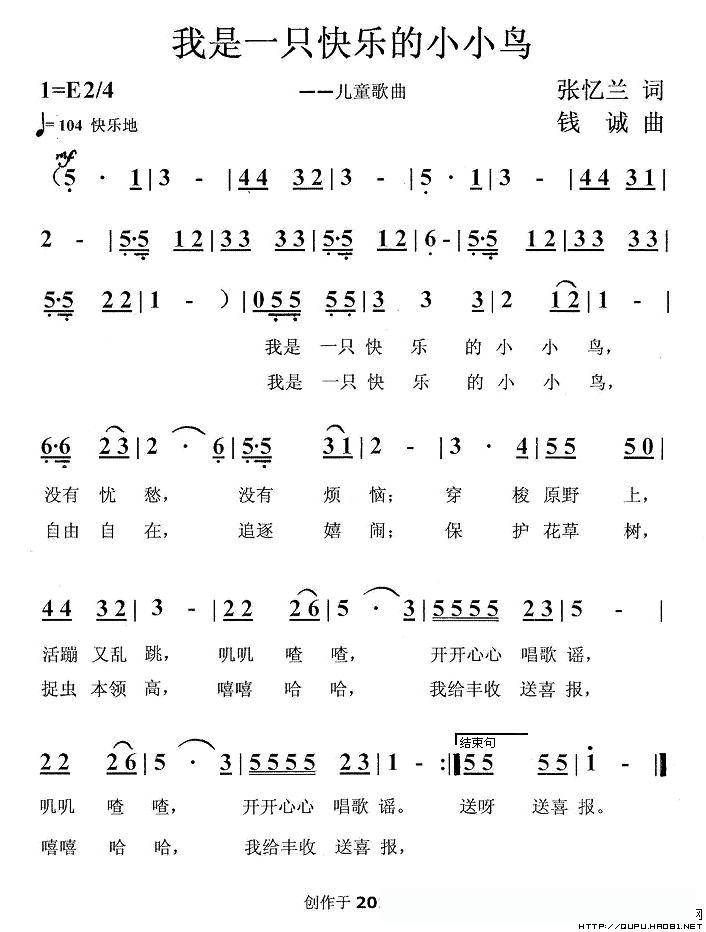 我是一只快乐的小小鸟
1=E2/4 ——儿童歌曲 张忆兰 词
♩= 104 快乐地 钱 诚 曲
mf
(5 · 1|3 - |44 32|3 - |5 · 1|3 - |44 31|
2 - |5·5 12|33 33|5·5 12|6 - |5·5 12|33 33|
5·5 22|1 - )|055 55|3 3 3|2 12|1 - |
我是 一只 快 乐 的 小 小 鸟,
我是 一只 快 乐 的 小 小 鸟,
6·6 23|2 · 6|5·5 31|2 - |3 · 4|55 50|
没有 忧 愁, 没有 烦 恼; 穿 梭 原野 上,
自由 自 在, 追逐 嬉 闹; 保 护 花草 树,
44 32|3 - |22 26|5 · 3|5555 23|5 - |
活蹦 又乱 跳, 叽叽 喳 喳, 开开心心 唱歌 谣,
捉虫 本领 高, 嘻嘻 哈 哈, 我给丰收 送喜 报,
结束句
22 26|5 · 3|5555 23|1 - :|55 55|i - |
叽叽 喳 喳, 开开心心 唱歌 谣。 送呀 送喜 报。
嘻嘻 哈 哈, 我给丰收 送喜 报,
创作于 20
网
HTTP://QUPU.HAO81.NET